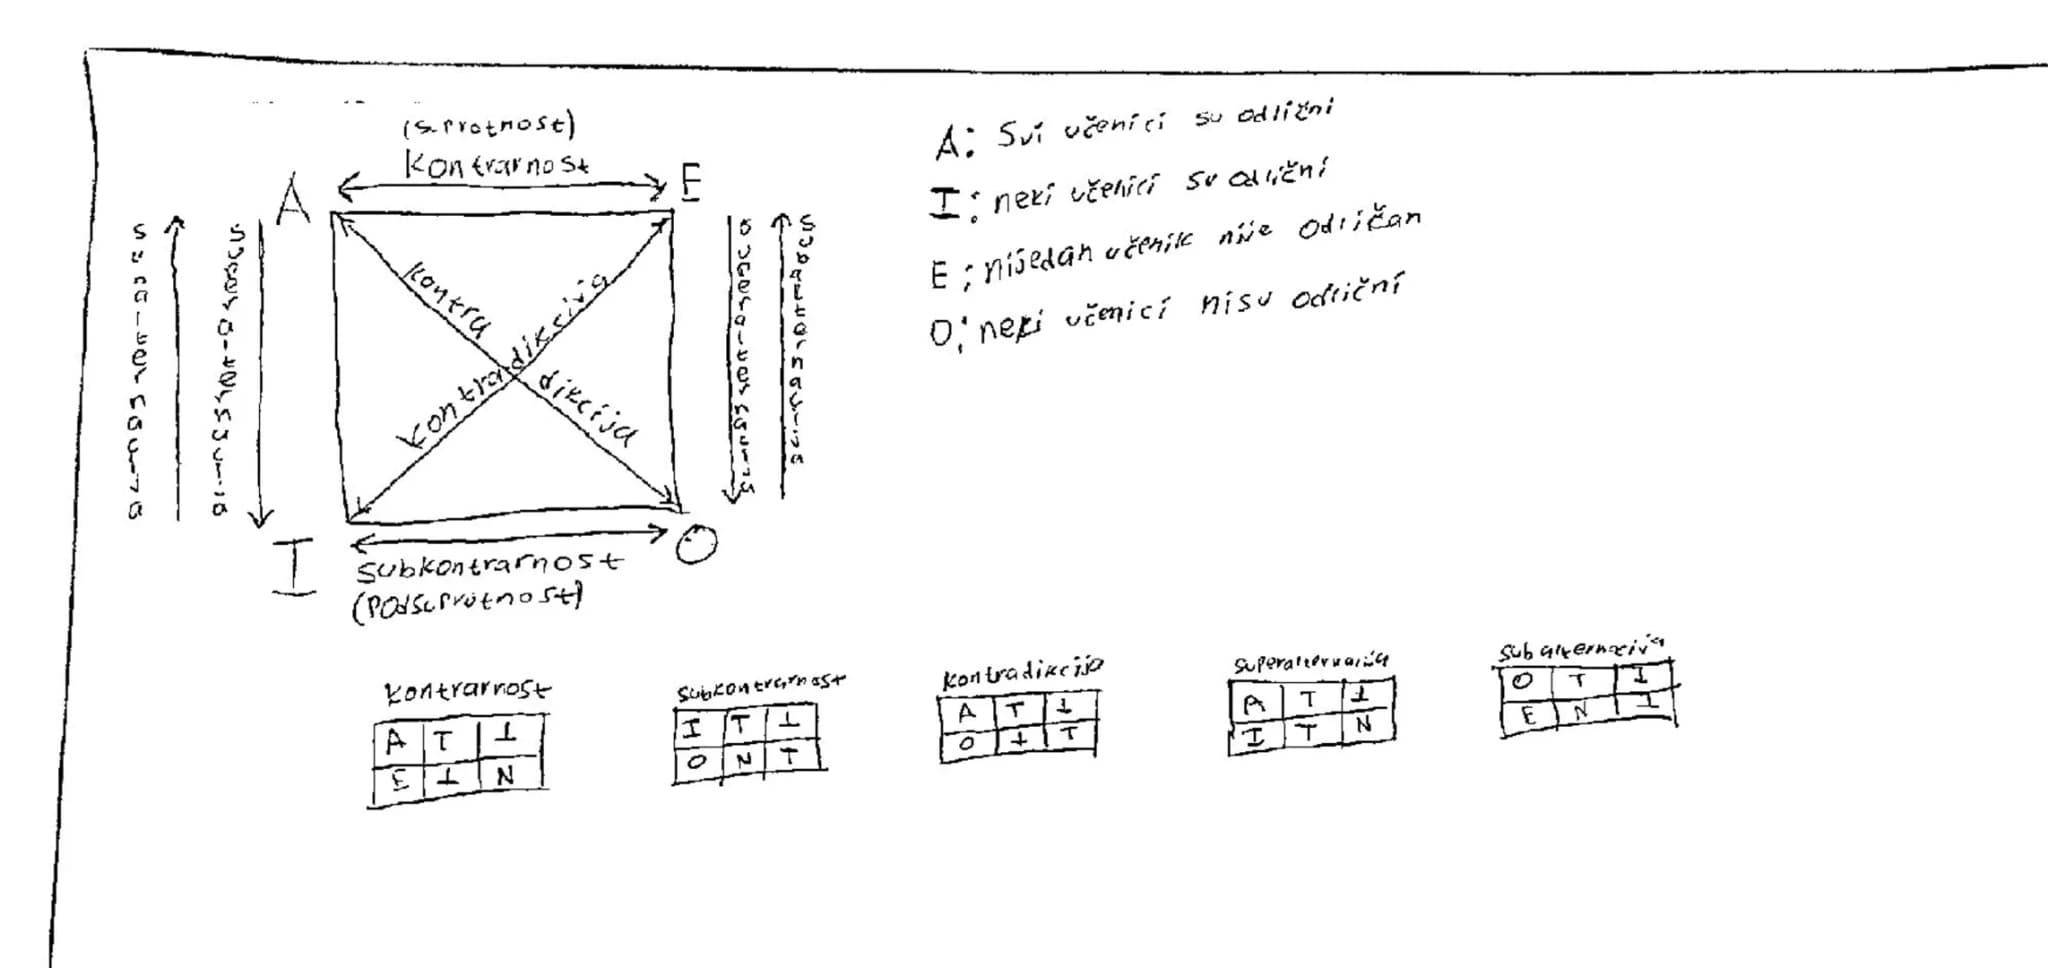 (suprotnost)
Kontrarnost
A
E
subalternacija
superalternacija
superalternacija
subalternacija
kontradikcija
kontradikcija
I
O
subkontrarnost
(podsuprotnost)
A: Svi učenici su odlični
I: neki učenici su odlični
E: nijedan učenik nije odličan
O: neki učenici nisu odlični
kontrarnost
A T ⊥
E ⊥ N
subkontrarnost
I T ⊥
O N T
kontradikcija
A T ⊥
O ⊥ T
superalternacija
A T ⊥
I T N
subalternacija
O T ⊥
E N ⊥